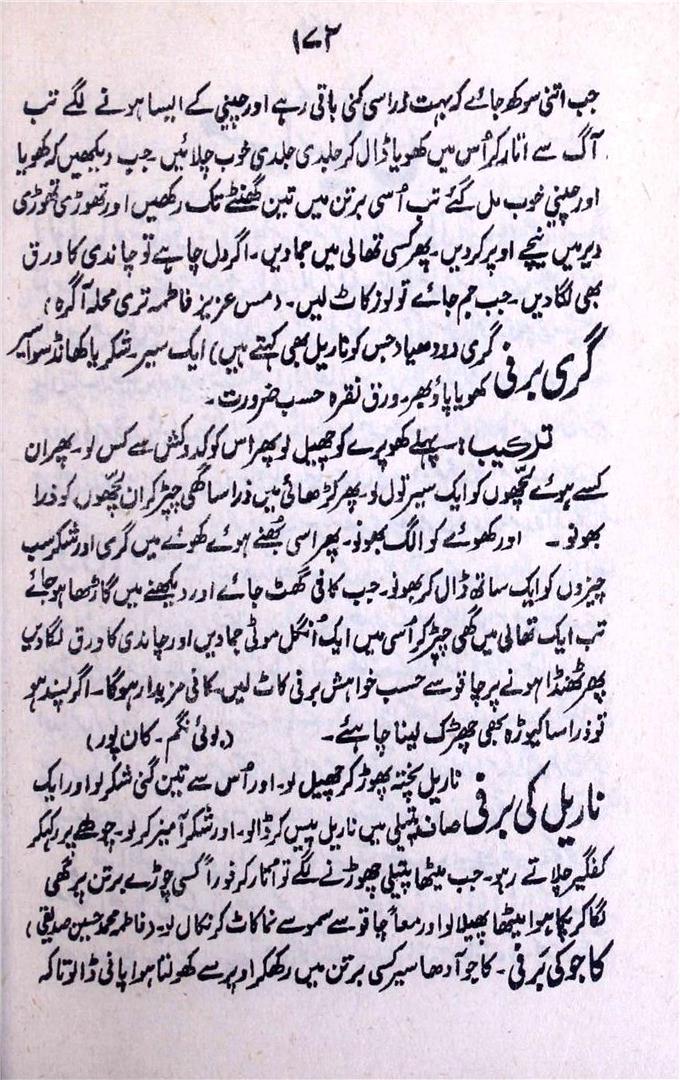 ۱۷۲
جب اتنی سوکھ جائے کہ بہت ذرا سی کنی باقی رہے اور چینی کے ایسا ہونے لگے تب
آگ سے اتار کر اُس میں کھویا ڈال کر جلدی جلدی خوب چلائیں جب دیکھیں کہ کھویا
اور چینی خوب مل گئے تب اُسی برتن میں تین گھنٹے تک رکھیں اور تھوڑی تھوڑی
دیر میں نیچے اوپر کر دیں۔ پھر کسی تھالی میں جما دیں۔ اگر دل چاہے تو چاندی کا ورق
بھی لگا دیں۔ جب جم جائے تو لوز کاٹ لیں۔ (مس عزیز فاطمہ تری محلہ آگرہ)
گری برفی گری (دودھیا جس کو ناریل بھی کہتے ہیں) ایک سیر۔ شکر یا کھانڈ سوا سیر
کھویا پاؤ بھر۔ ورق نقرہ حسب ضرورت۔
ترکیب:۔ پہلے کھوپرے کو چھیل لو پھر اس کو کدوکش سے کس لو۔ پھر ان
کسے ہوئے لچھوں کو ایک سیر تول لو۔ پھر کڑھائی میں ذرا سا گھی چپڑ کر ان لچھوں کو ذرا
بھونو۔ اور کھوئے کو الگ بھونو۔ پھر اسی بُھنے ہوئے کھوئے میں گری اور شکر سب
چیزوں کو ایک ساتھ ڈال کر بھونو۔ جب کافی گھٹ جائے اور دیکھنے میں گاڑھا ہو جائے
تب ایک تھالی میں گھی چپڑ کر اُسی میں ایک اُنگل موٹی جما دیں اور چاندی کا ورق لگا دیں
پھر ٹھنڈا ہونے پر چاقو سے حسب خواہش برفی کاٹ لیں۔ کافی مزیدار ہوگا۔ اگر پسند ہو
تو ذرا سا کیوڑہ بھی چھڑک لینا چاہئے۔ نگم۔ کان پور)
ناریل کی برفی ناریل پختہ پھوڑ کر چھیل لو۔ اور اُس سے تین گنی شکر لو اور ایک
صاف پتیلی میں ناریل پیس کر ڈالو۔ اور شکر آمیز کر لو۔ چولھے پر رکھ کر
کفگیر چلاتے رہو۔ جب میٹھا پتیلی چھوڑنے لگے تو اُتار کر فوراً کسی چوڑے برتن پر گھی
لگا کر پکا ہوا میٹھا پھیلا لو اور معاً چاقو سے سموسے نما کاٹ کر نکال لو۔ (فاطمہ محمد حسین صدیقی)
کاجو کی برفی۔ کاجو آدھا سیر کسی برتن میں رکھکر اوپر سے کھولتا ہوا پانی ڈالو تاکہ